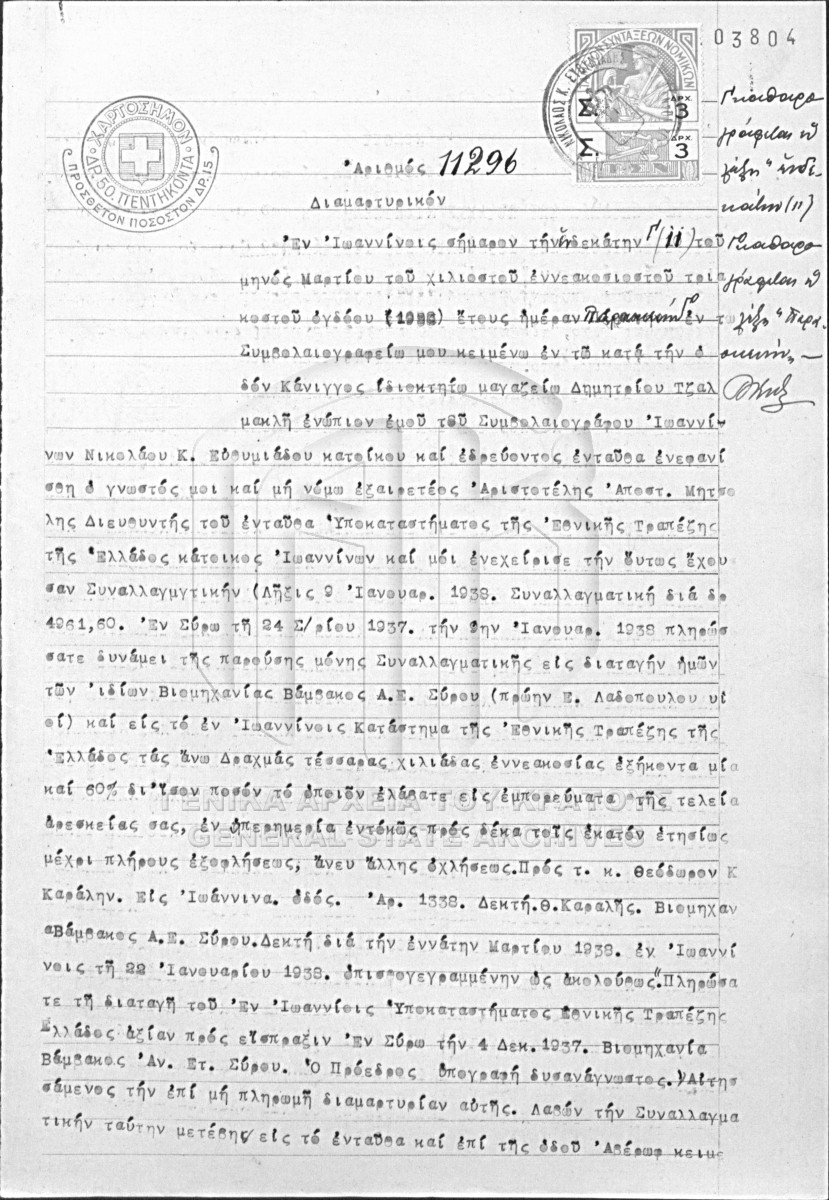 03804
ΤΑΜΕΙΟΝ ΣΥΝΤΑΞΕΩΝ ΝΟΜΙΚΩΝ
ΝΙΚΟΛΑΟΣ Κ. ΕΥΘΥΜΙΑΔΗΣ
Σ. ΔΡΧ. 3
Σ. ΔΡΧ. 3
ΧΑΡΤΟΣΗΜΟΝ
ΔΡ. 50. ΠΕΝΤΗΚΟΝΤΑ
ΠΡΟΣΘΕΤΟΝ ΠΟΣΟΣΤΟΝ ΔΡ. 15
Ἀριθμός 11296
Διαμαρτυρικόν
Ἐν Ἰωαννίνοις σήμερον τήν ἑνδεκάτην (11) τοῦ
μηνός Μαρτίου τοῦ χιλιοστοῦ ἐννεακοσιοστοῦ τρια
κοστοῦ ὀγδόου (1938) ἔτους ἡμέραν Παρασκευήν ἐν τῶ
Συμβολαιογραφείω μου κειμένω ἐν τῶ κατά τήν ὁ
δόν Κάνιγγος ἰδιοκτήτω μαγαζείω Δημητρίου Τζαλ
μακλῆ ἐνώπιον ἐμοῦ τοῦ Συμβολαιογράφου Ἰωαννί-
νων Νικολάου Κ. Εὐθυμιάδου κατοίκου καί ἑδρεύοντος ἐνταῦθα ἐνεφανί
σθη ὁ γνωστός μοι καί μή νόμω ἐξαιρετέος Ἀριστοτέλης Ἀποστ. Μητσο
λης Διευθυντής τοῦ ἐνταῦθα Ὑποκαταστήματος τῆς Ἐθνικῆς Τραπέζης
τῆς Ἑλλάδος κάτοικος Ἰωαννίνων καί μοί ἐνεχείρισε τήν οὕτως ἔχου
σαν Συναλλαγμγτικήν (Λῆξις 9 Ἰανουαρ. 1938. Συναλλαγματική διά δρ
4961,60. Ἐν Σύρω τῆ 24 Σ/ρίου 1937. τήν 9ην Ἰανουαρ. 1938 πληρώσ
σατε δυνάμει τῆς παρούσης μόνης Συναλλαγματικῆς εἰς διαταγήν ἡμῶν
τῶν ἰδίων Βιομηχανίας Βάμβακος Α.Ε. Σύρου (πρώην Ε. Λαδοπουλου υἱ
οί) καί εἰς τό ἐν Ἰωαννίνοις Κατάστημα τῆς Ἐθνικῆς Τραπέζης τῆς
Ἑλλάδος τάς ἄνω Δραχμάς τέσσαρας χιλιάδας ἐννεακοσίας ἑξήκοντα μία
καί 60% δι'ἴσον ποσόν τό ὁποῖον ἐλάβατε εἰς ἐμπορεύματα τῆς τελεία
ἀρεσκείας σας, ἐν ὑπερημερία ἐντόκως πρός δέκα τοῖς ἑκατόν ἐτησίως
μέχρι πλήρους ἐξοφλήσεως, ἄνευ ἄλλης ὀχλήσεως.Πρός τ. κ. Θεόδωρον Κ
Καράλην. Εἰς Ἰωάννινα. ὁδός. Ἀρ. 1338. Δεκτή.Θ.Καραλῆς. Βιομηχαν
αΒάμβακος Α.Ε. Σύρου.Δεκτή διά τήν ἐννάτην Μαρτίου 1938. ἐν Ἰωαννί
νοις τῆ 22 Ἰανουαρίου 1938. ὁπισθογεγραμμένην ὡς ἀκολούθως".Πληρώσα
τε τῆ διαταγῆ τοῦ Ἐν Ἰωαννίοις Ὑποκαταστήματος Ἐθνικῆς Τραπέζης
Ἑλλάδος ἀξίαν πρός εἴσπραξιν Ἐν Σύρω τήν 4 Δεκ. 1937. Βιομηχανία
Βάμβακος Ἀν. Ετ. Σύρου. Ὁ Πρόεδρος ὑπογραφή δυσανάγνωστος.)Αἰτησ
σάμενος τήν ἐπί μή πληρωμῆ διαμαρτυρίαν αὐτῆς. Λαβών τήν Συναλλαγμα
τικήν ταύτην μετέβην εἰς τό ἐνταῦθα καί ἐπί τῆς ὁδοῦ Ἀβέρωφ κειμε
λέξη "ἑνδε-
κάτην (11)
λέξη "Παρα-
σκευήν" —
ΓΕΝΙΚΑ ΑΡΧΕΙΑ ΤΟΥ ΚΡΑΤΟΥΣ
GENERAL STATE ARCHIVES